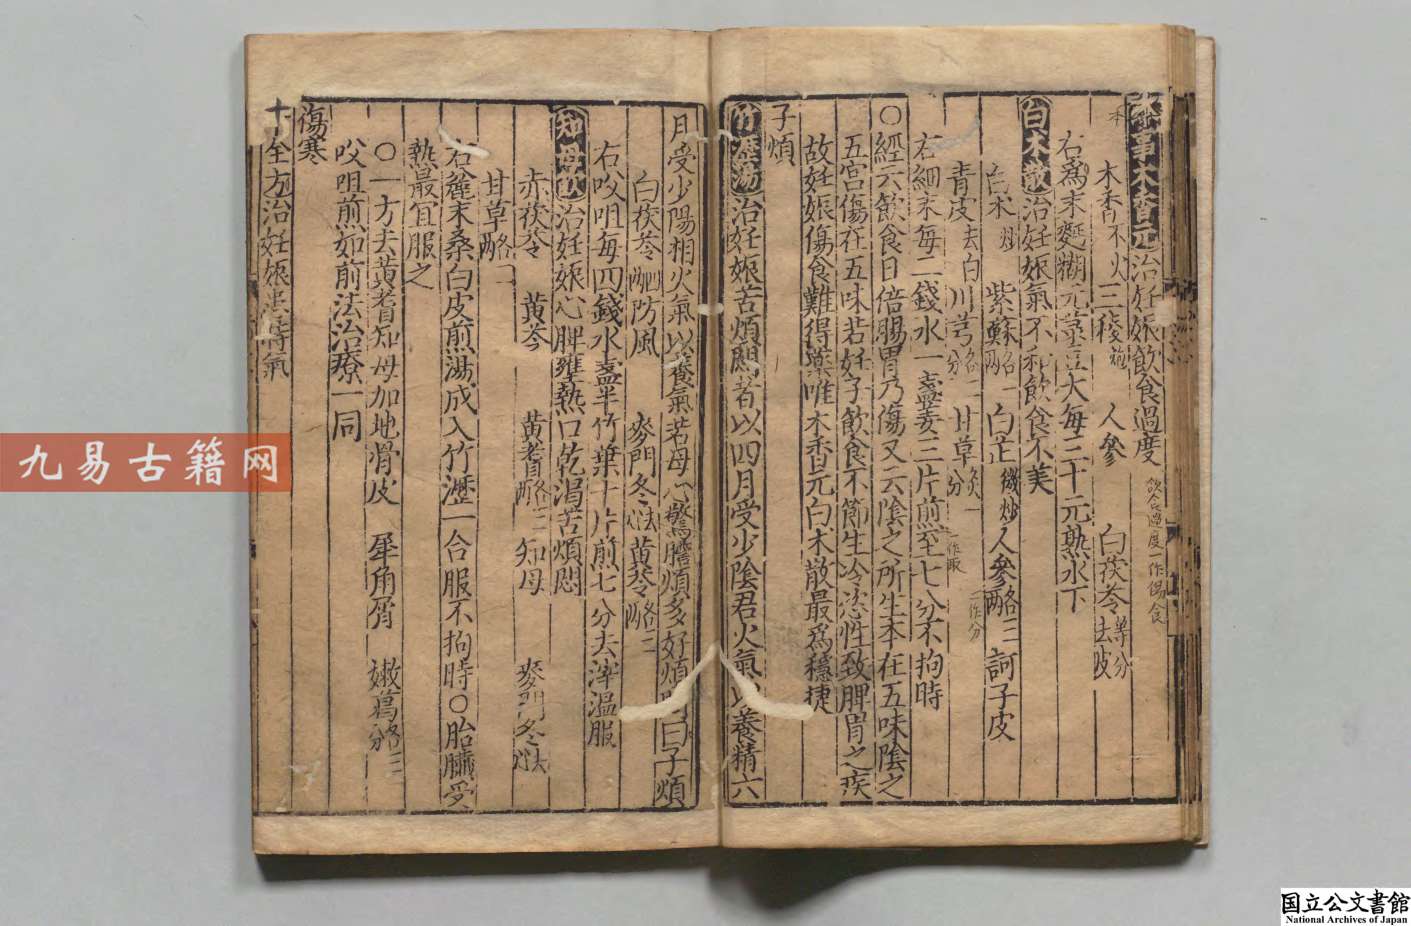 木香元治妊娠飲食過度
飲食過度一作傷食
木香不火 三稜 人參 白茯苓等分去皮
右爲末麪糊元菉豆大每三十元熟水下
白朮散治妊娠氣不和飲食不美
白朮炒 紫蘇各一兩 白芷微炒 人參三兩 訶子皮
青皮去白 川芎 甘草
一作分
右細末每二錢水一盞姜三片煎至七八分不拘時
〇經云飲食日倍腸胃乃傷又云陰之所生本在五味陰之
五宮傷在五味若妊子飲食不節生冷恣性致脾胃之疾
故妊娠傷食難得藥唯木香元白朮散最爲穩捷
子煩
竹瀝湯治妊娠苦煩悶者以四月受少陰君火氣以養精六
月受少陽相火氣以養氣若母心驚膽煩多好煩悶曰子煩
白茯苓四兩 防風 麥門冬 黃芩
右㕮咀每四錢水盞半竹葉十片煎七分去滓溫服
知母飲治妊娠心脾壅熱口乾渴苦煩悶
赤茯苓 黃芩 黃耆各三兩 知母 麥門冬
甘草
右麄末桑白皮煎湯成入竹瀝一合服不拘時〇胎臟受
熱最宜服之
〇一方去黃耆知母加地骨皮 犀角屑 嫩葛
㕮咀煎如前法治療一同
傷寒
十全方治妊娠患時氣
九易古籍网
国立公文書館
National Archives of Japan